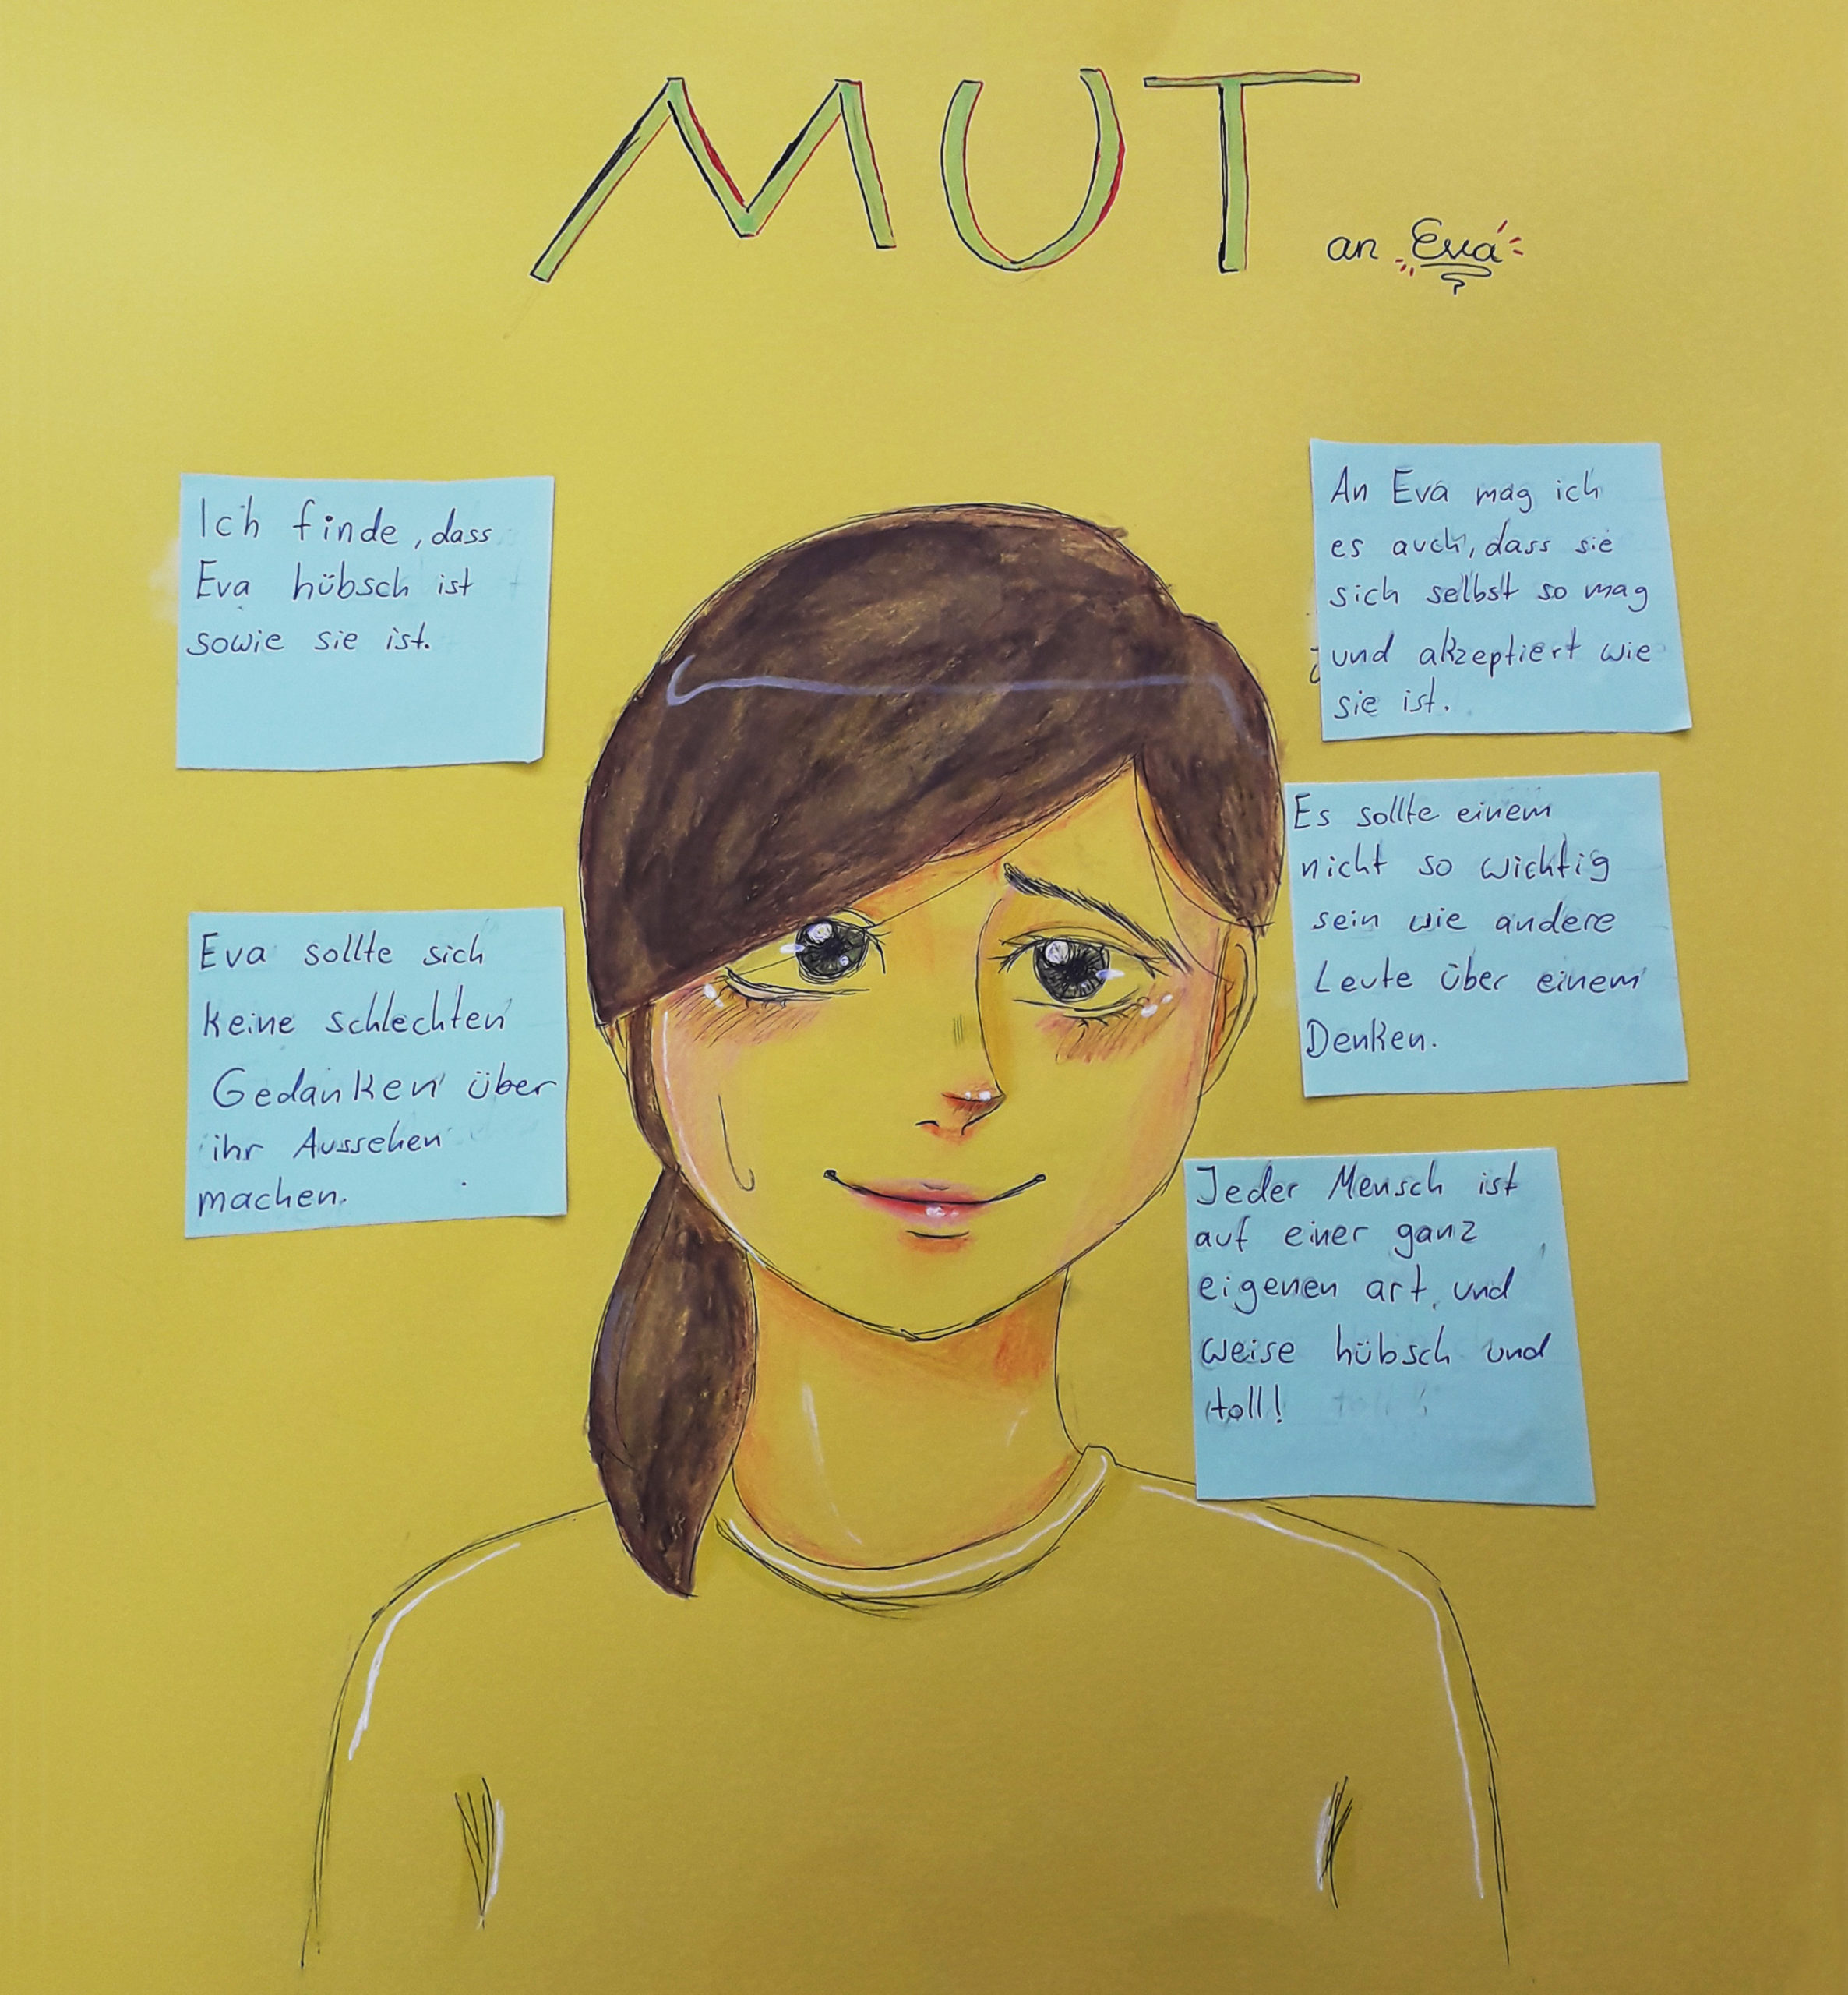 MUT
an Eva
Ich finde, dass
Eva hübsch ist
sowie sie ist.
Eva sollte sich
keine schlechten
Gedanken über
ihr Aussehen
machen.
An Eva mag ich
es auch, dass sie
sich selbst so mag
und akzeptiert wie
sie ist.
Es sollte einem
nicht so wichtig
sein wie andere
Leute über einem
Denken.
Jeder Mensch ist
auf einer ganz
eigenen art, und
weise hübsch und
toll!